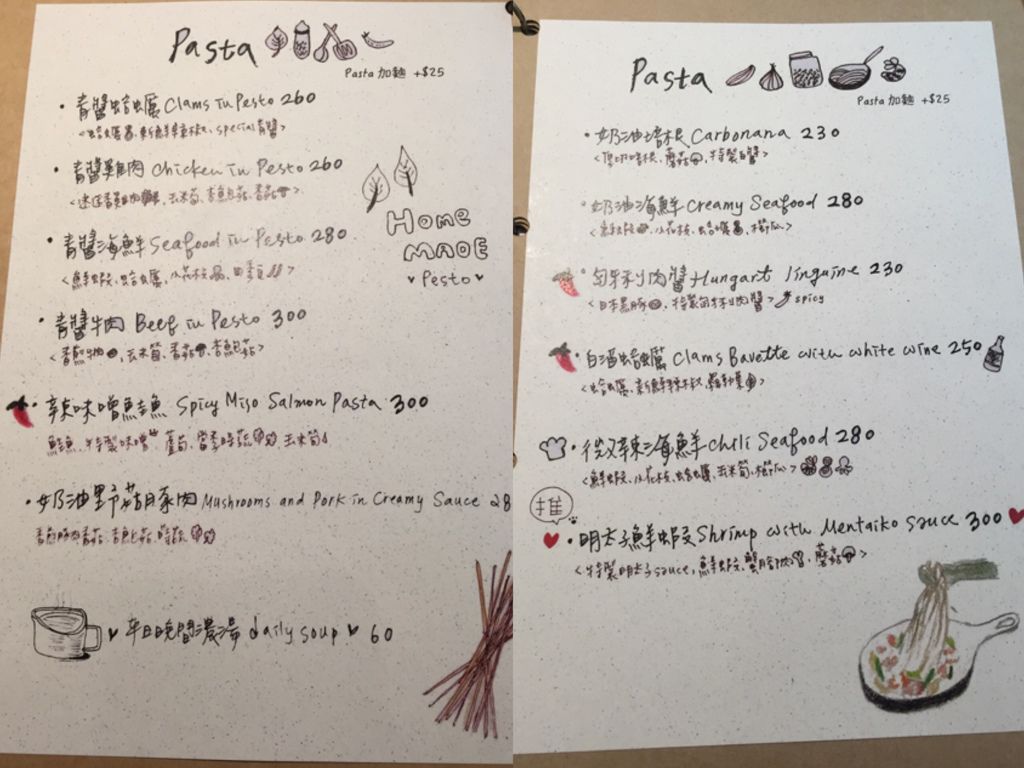 Pasta
Pasta 加麵 +$25
· 青醬蛤蠣 Clams in Pesto 260
special青醬>
· 青醬雞肉 Chicken in Pesto 260
玉米筍、杏鮑菇、香菇
· 青醬海鮮 Seafood in Pesto 280
<鮮蝦、蛤蠣、小花枝
Home
MADE
Pesto
· 青醬牛肉 Beef in Pesto 300
玉米筍、香菇、杏鮑菇>
· 辣味噌鮭魚 Spicy Miso Salmon Pasta 300
鮭魚、特製味噌、蘆筍、當季時蔬、玉米筍
· 奶油野菇豚肉 Mushrooms and Pork in Creamy Sauce 28
平日晚間濃湯 daily soup 60
Pasta
Pasta 加麵 +$25
· 奶油培根 Carbonana 230
<厚切培根、蘑菇、特製白醬>
· 奶油海鮮 Creamy Seafood 280
<鮮蝦、小花枝、蛤蠣、櫛瓜>
· 匈牙利肉醬 Hungart linguine 230
<日本黑豚、特製匈牙利肉醬> spicy
· 白酒蛤蠣 Clams Bavette with white wine 250
<蛤蠣、新鮮辣椒、羅勒葉>
· 微辣海鮮 Chili Seafood 280
<鮮蝦、小花枝、蛤蠣、玉米筍、櫛瓜>
推
· 明太子鮮蝦 Shrimp with Mentaiko sauce 300
<特製明太子sauce, 鮮蝦、蟹膾肉、蘑菇>